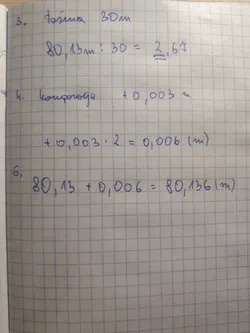 3. 30m
80,13m : 30 = 2,67
4. +0,003 =
+0,003 · 2 = 0,006 (m)
6.
80,13 + 0,006 = 80,136 (m)